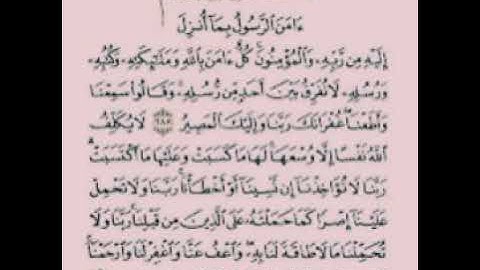 ءَامَنَ ٱلرَّسُولُ بِمَآ أُنزِلَ
إِلَيْهِ مِن رَّبِّهِۦ وَٱلْمُؤْمِنُونَ ۚ كُلٌّ ءَامَنَ بِٱللَّهِ وَمَلَٰٓئِكَتِهِۦ وَكُتُبِهِۦ
وَرُسُلِهِۦ لَا نُفَرِّقُ بَيْنَ أَحَدٍ مِّن رُّسُلِهِۦ ۚ وَقَالُوا۟ سَمِعْنَا
وَأَطَعْنَا ۖ غُفْرَانَكَ رَبَّنَا وَإِلَيْكَ ٱلْمَصِيرُ ٢٨٥ لَا يُكَلِّفُ
ٱللَّهُ نَفْسًا إِلَّا وُسْعَهَا ۚ لَهَا مَا كَسَبَتْ وَعَلَيْهَا مَا ٱكْتَسَبَتْ ۗ
رَبَّنَا لَا تُؤَاخِذْنَآ إِن نَّسِينَآ أَوْ أَخْطَأْنَا ۚ رَبَّنَا وَلَا تَحْمِلْ
عَلَيْنَآ إِصْرًا كَمَا حَمَلْتَهُۥ عَلَى ٱلَّذِينَ مِن قَبْلِنَا ۚ رَبَّنَا وَلَا
تُحَمِّلْنَا مَا لَا طَاقَةَ لَنَا بِهِۦ ۖ وَٱعْفُ عَنَّا وَٱغْفِرْ لَنَا وَٱرْحَمْنَآ ۚ